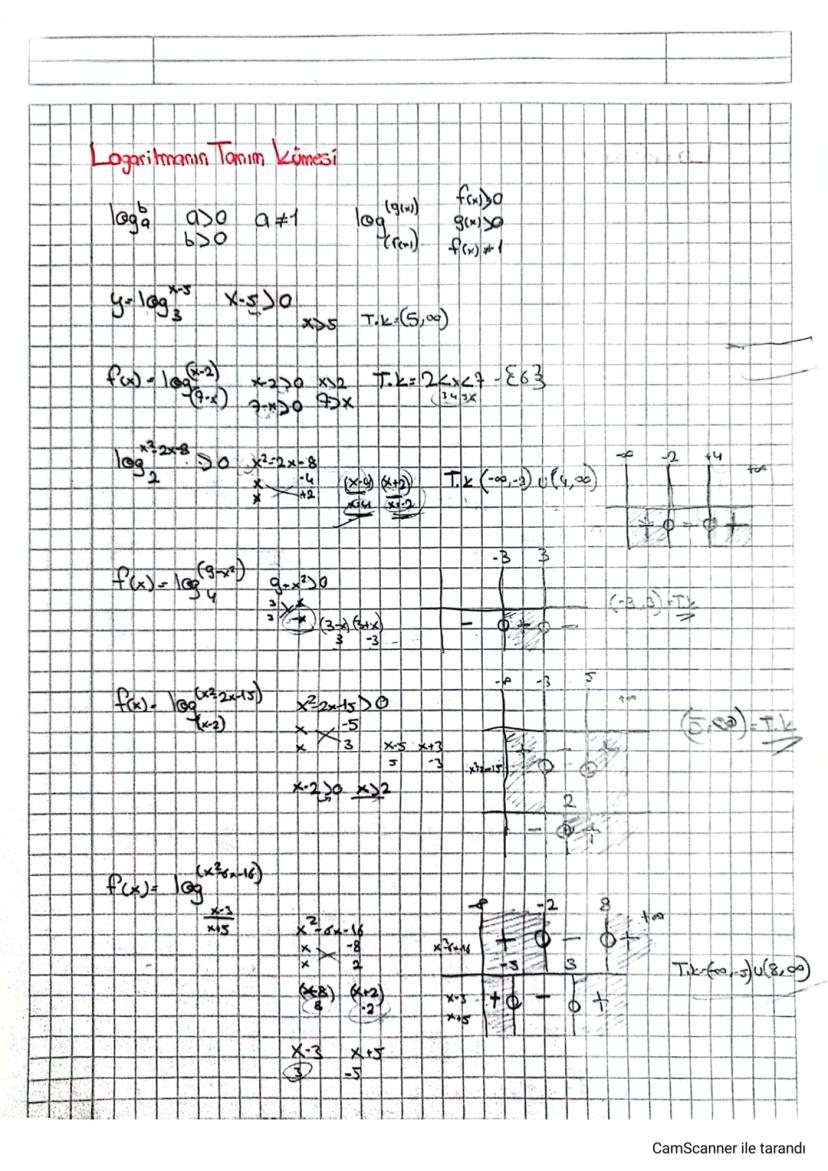 Logaritmanın Tanım Kümesi
log_a^b a>0 a≠1 log_(f(x))^(g(x)) f(x)>0
b>0 g(x)>0
f(x)≠1
y=log_3^x-5 x-5>0
x>5 T.k=(5,∞)
f(x)=log_(7-x)^(x-2) x-2>0 x>2 T.k=2<x<7 -{6}
7-x>0 7>x
log_2^x²-2x-8 >0 x²-2x-8
x -4 (x-4) (x+2) T.k (-∞,-2)∪(4,∞)
x +2 x=4 x=-2
-∞ -2 +4 +∞
+ - +
f(x)=log_4^(9-x²) 9-x²>0
3 x
3 -x (3-x) (3+x)
3 -3
-3 3
- + -
(-3,3)=T.k
f(x)=log_(x-2)^(x²-2x-15) x²-2x-15>0
x -5
x 3 x-5 x+3
5 -3
x-2>0 x>2
-∞ -3 5 +∞
x²-2x-15 + - +
2
- +
(5,∞)=T.k
f(x)=log_x-3/x+5^(x²-6x-16)
x²-6x-16
x -8
x 2
(x-8) (x+2)
8 -2
x-3 x+5
3 -5
-∞ -2 8 +∞
x²-6x-16 + - +
-5 3
x-3 + - +
x+5
T.k=(-∞,-5)∪(8,∞)
CamScanner ile tarandı